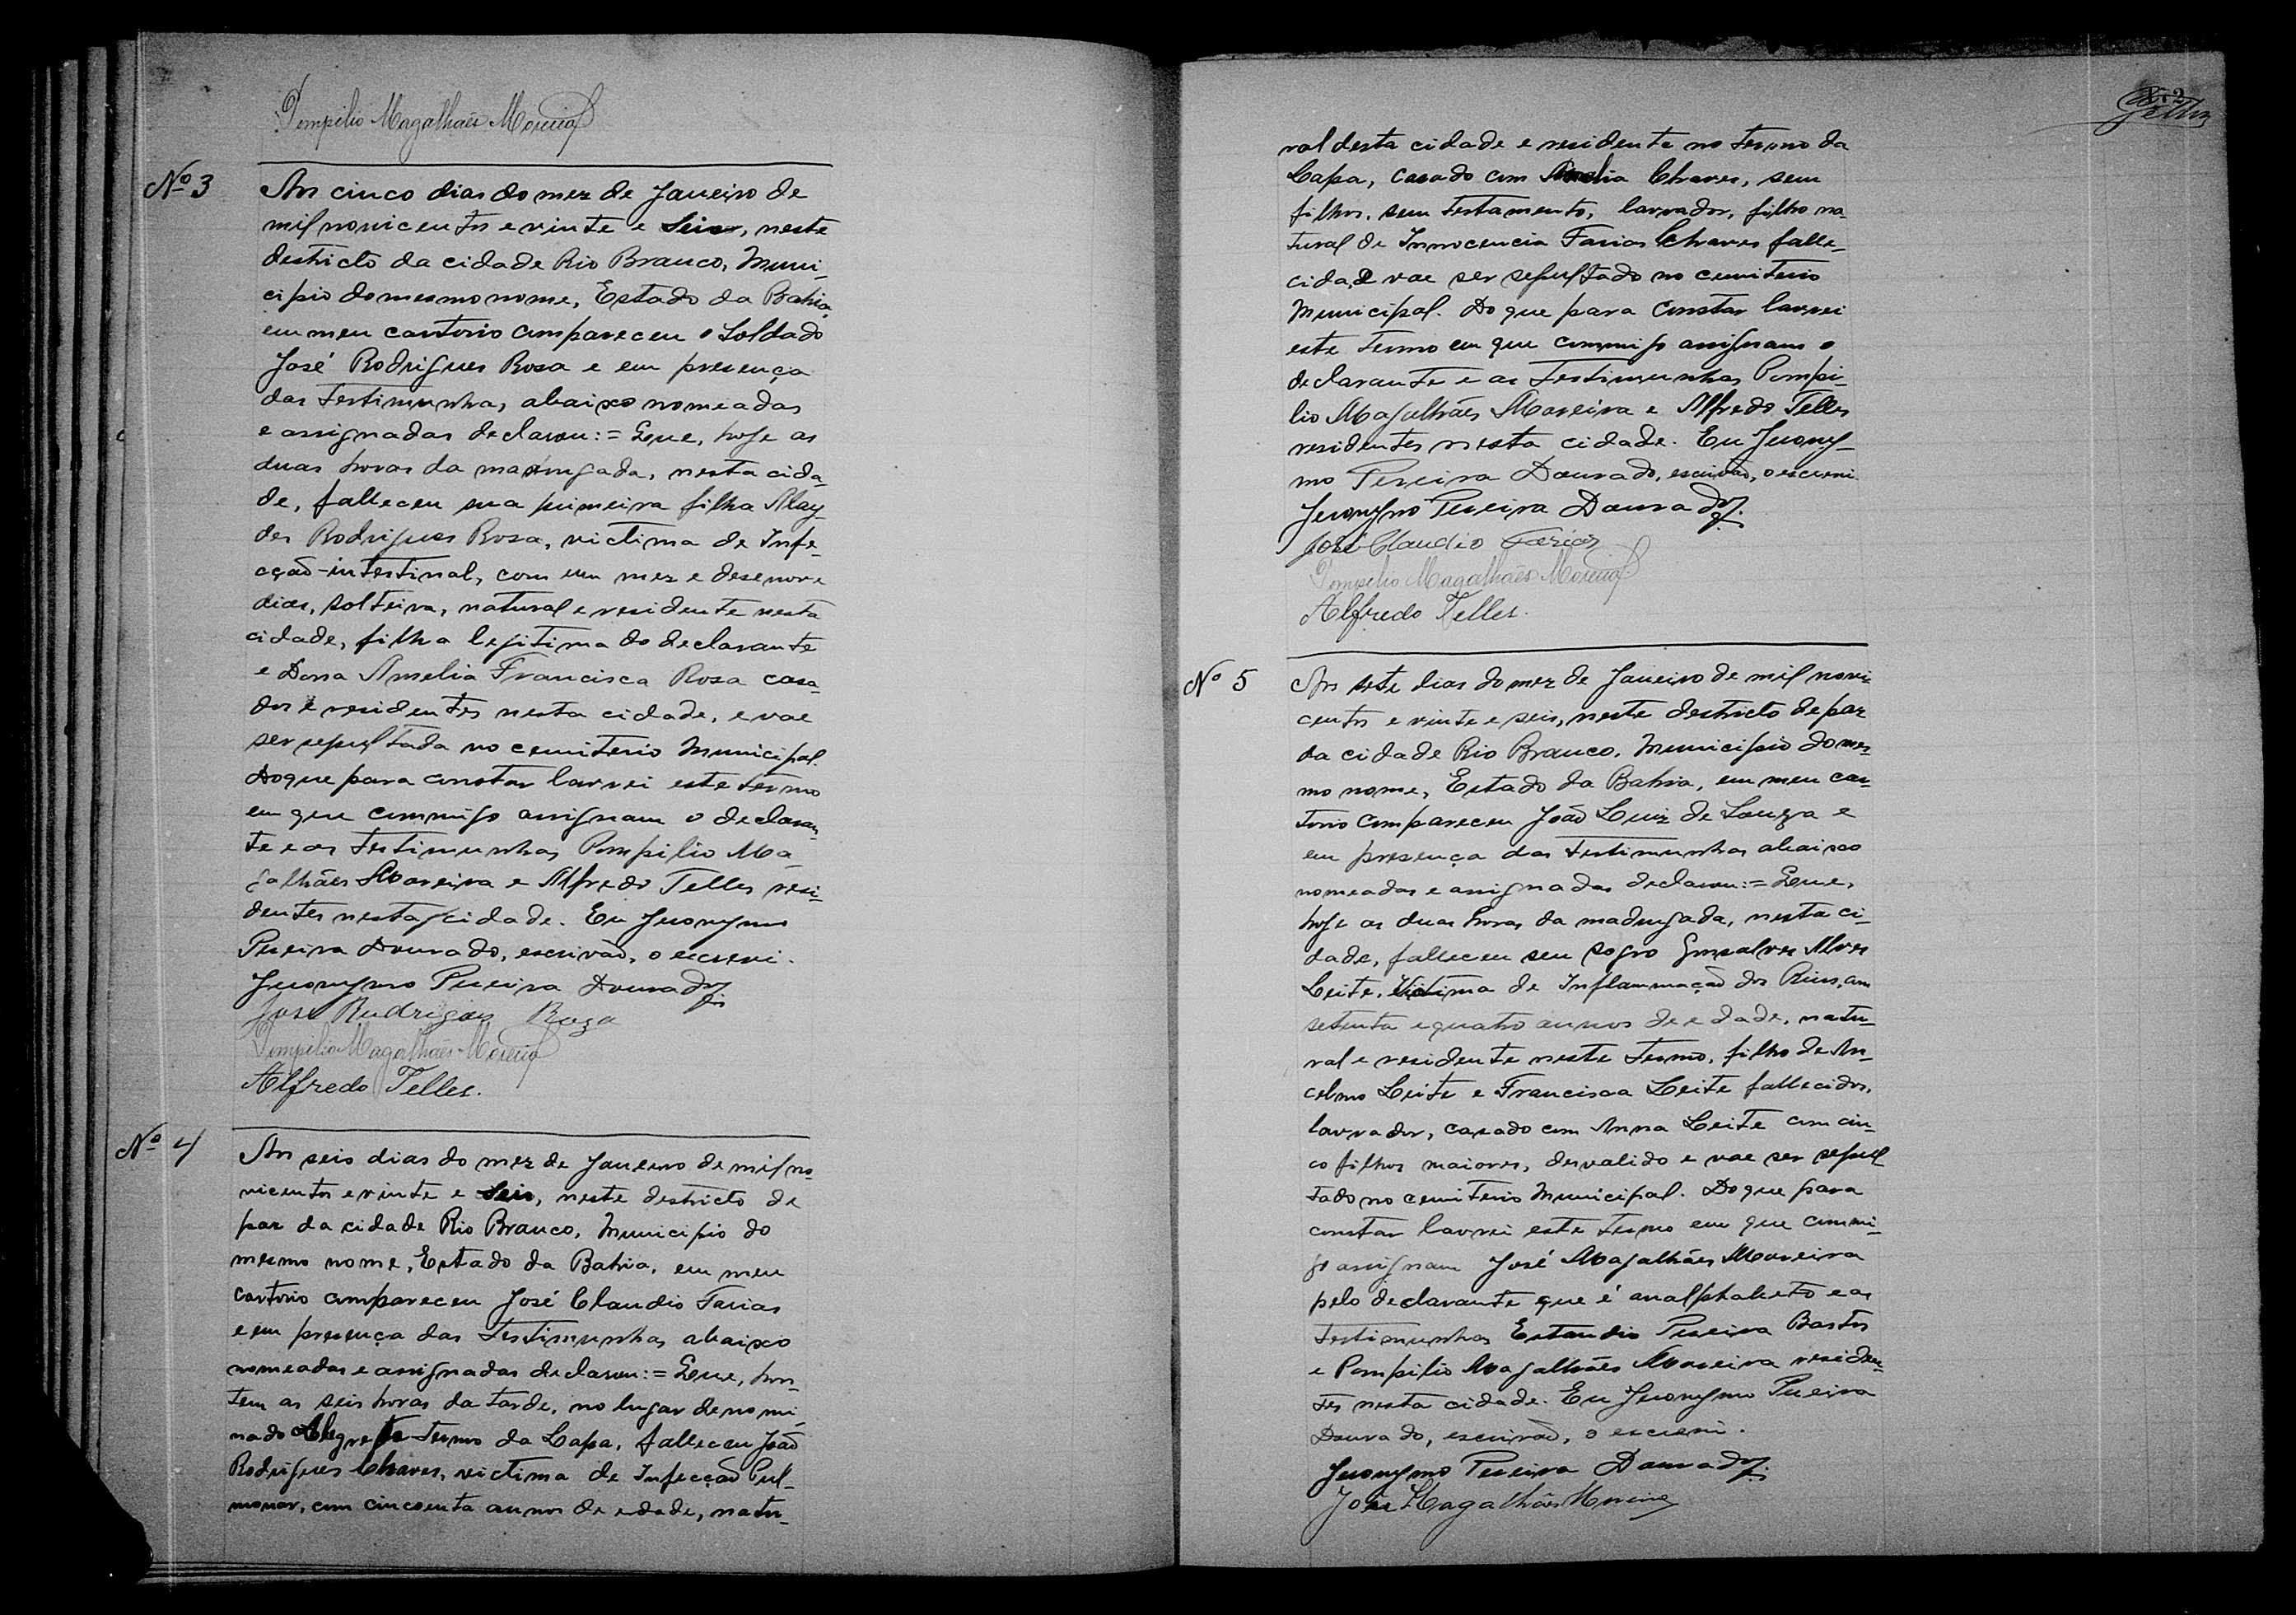 Pompilio Magalhães Moreira
Nº 3
Aos cinco dias do mez de Janeiro de
mil novicentos e vinte e Seis, neste
destricto da cidade Rio Branco, Muni-
cipio do mesmo nome, Estado da Bahia,
em meu cartorio compareceu o Soldado
José Rodrigues Rosa e em presença
das testimunhas abaixo nomeadas
e assignadas declarou:= Que, hoje as
duas horas da madrugada, nesta cida-
de, falleceu sua primeira filha Alay-
des Rodrigues Rosa, victima de Infe-
cção-intestinal, com um mez e desenove
dias, solteira, natural e residente nesta
cidade, filha legitima do declarante
e Dona Amelia Francisca Rosa casa-
dos e residentes nesta cidade, e vae
ser sepultada no cemiterio Municipal.
Do que para constar lavrei este termo
em que commigo assignam o declaran-
te e as testimunhas Pompilio Ma-
galhães Moreira e Alfredo Telles resi-
dentes nesta cidade. Eu Jeronymo
Pereira Dourado, escrivão, o escrevi.
Jeronymo Pereira Dourado
José Rudrigues Roza
Pompilio Magalhães Moreira
Alfredo Telles.
Nº 4
Aos seis dias do mez de Janeiro de mil no-
vicentos e vinte e Seis, neste destricto de
paz da cidade Rio Branco, Municipio do
mesmo nome, Estado da Bahia, em meu
cartorio compareceu José Claudio Farias
e em presença das testimunhas abaixo
nomeadas e assignadas declarou:= Que, hon-
tem as seis horas da tarde, no lugar denomi-
nado Alegrete termo da Lapa, falleceu João
Rodrigues Chaves, victima de Infecção Pul-
monar, com cincoenta annos de edade, natu-
ral desta cidade e residente no termo da
Lapa, casado com Amelia Chaves, sem
filhos, sem testamento, lavrador, filho na-
tural de Innocencia Farias Chaves falle-
cida, e vae ser sepultado no cemiterio
Municipal. Do que para constar lavrei
este termo em que commigo assignam o
declarante e as testimunhas Pompi-
lio Magalhães Moreira e Alfredo Telles
residentes nesta cidade. Eu Jerony-
mo Pereira Dourado, escrivão, o escrevi.
Jeronymo Pereira Dourado
José Claudio Farias
Pompilio Magalhães Moreira
Alfredo Telles.
Nº 5
Aos sete dias do mez de Janeiro de mil novi-
centos e vinte e seis, neste destricto de paz
da cidade Rio Branco, Municipio do mes-
mo nome, Estado da Bahia, em meu car-
torio compareceu João Luiz de Souza e
em presença das testimunhas abaixo
nomeadas e assignadas declarou:= Que,
hoje as duas horas da madrugada, nesta ci-
dade, falleceu seu sogro Gonsalves Alves
Leite, Victima de Inflammação dos Rins, com
setenta e quatro annos de edade, natu-
ral e residente neste termo, filho de An-
celmo Leite e Francisca Leite fallecidos,
lavrador, casado com Anna Leite com cin-
co filhos maiores, desvalido e vae ser sepul-
tado no cemiterio Municipal. Do que para
constar lavrei este termo em que commi-
go assignam José Magalhães Moreira
pelo declarante que é analphabeto e as
testimunhas Pereira Bastos
e Pompilio Magalhães Moreira residen-
tes nesta cidade. Eu Jeronymo Pereira
Dourado, escrivão, o escrevi.
Jeronymo Pereira Dourado
José Magalhães Moreira